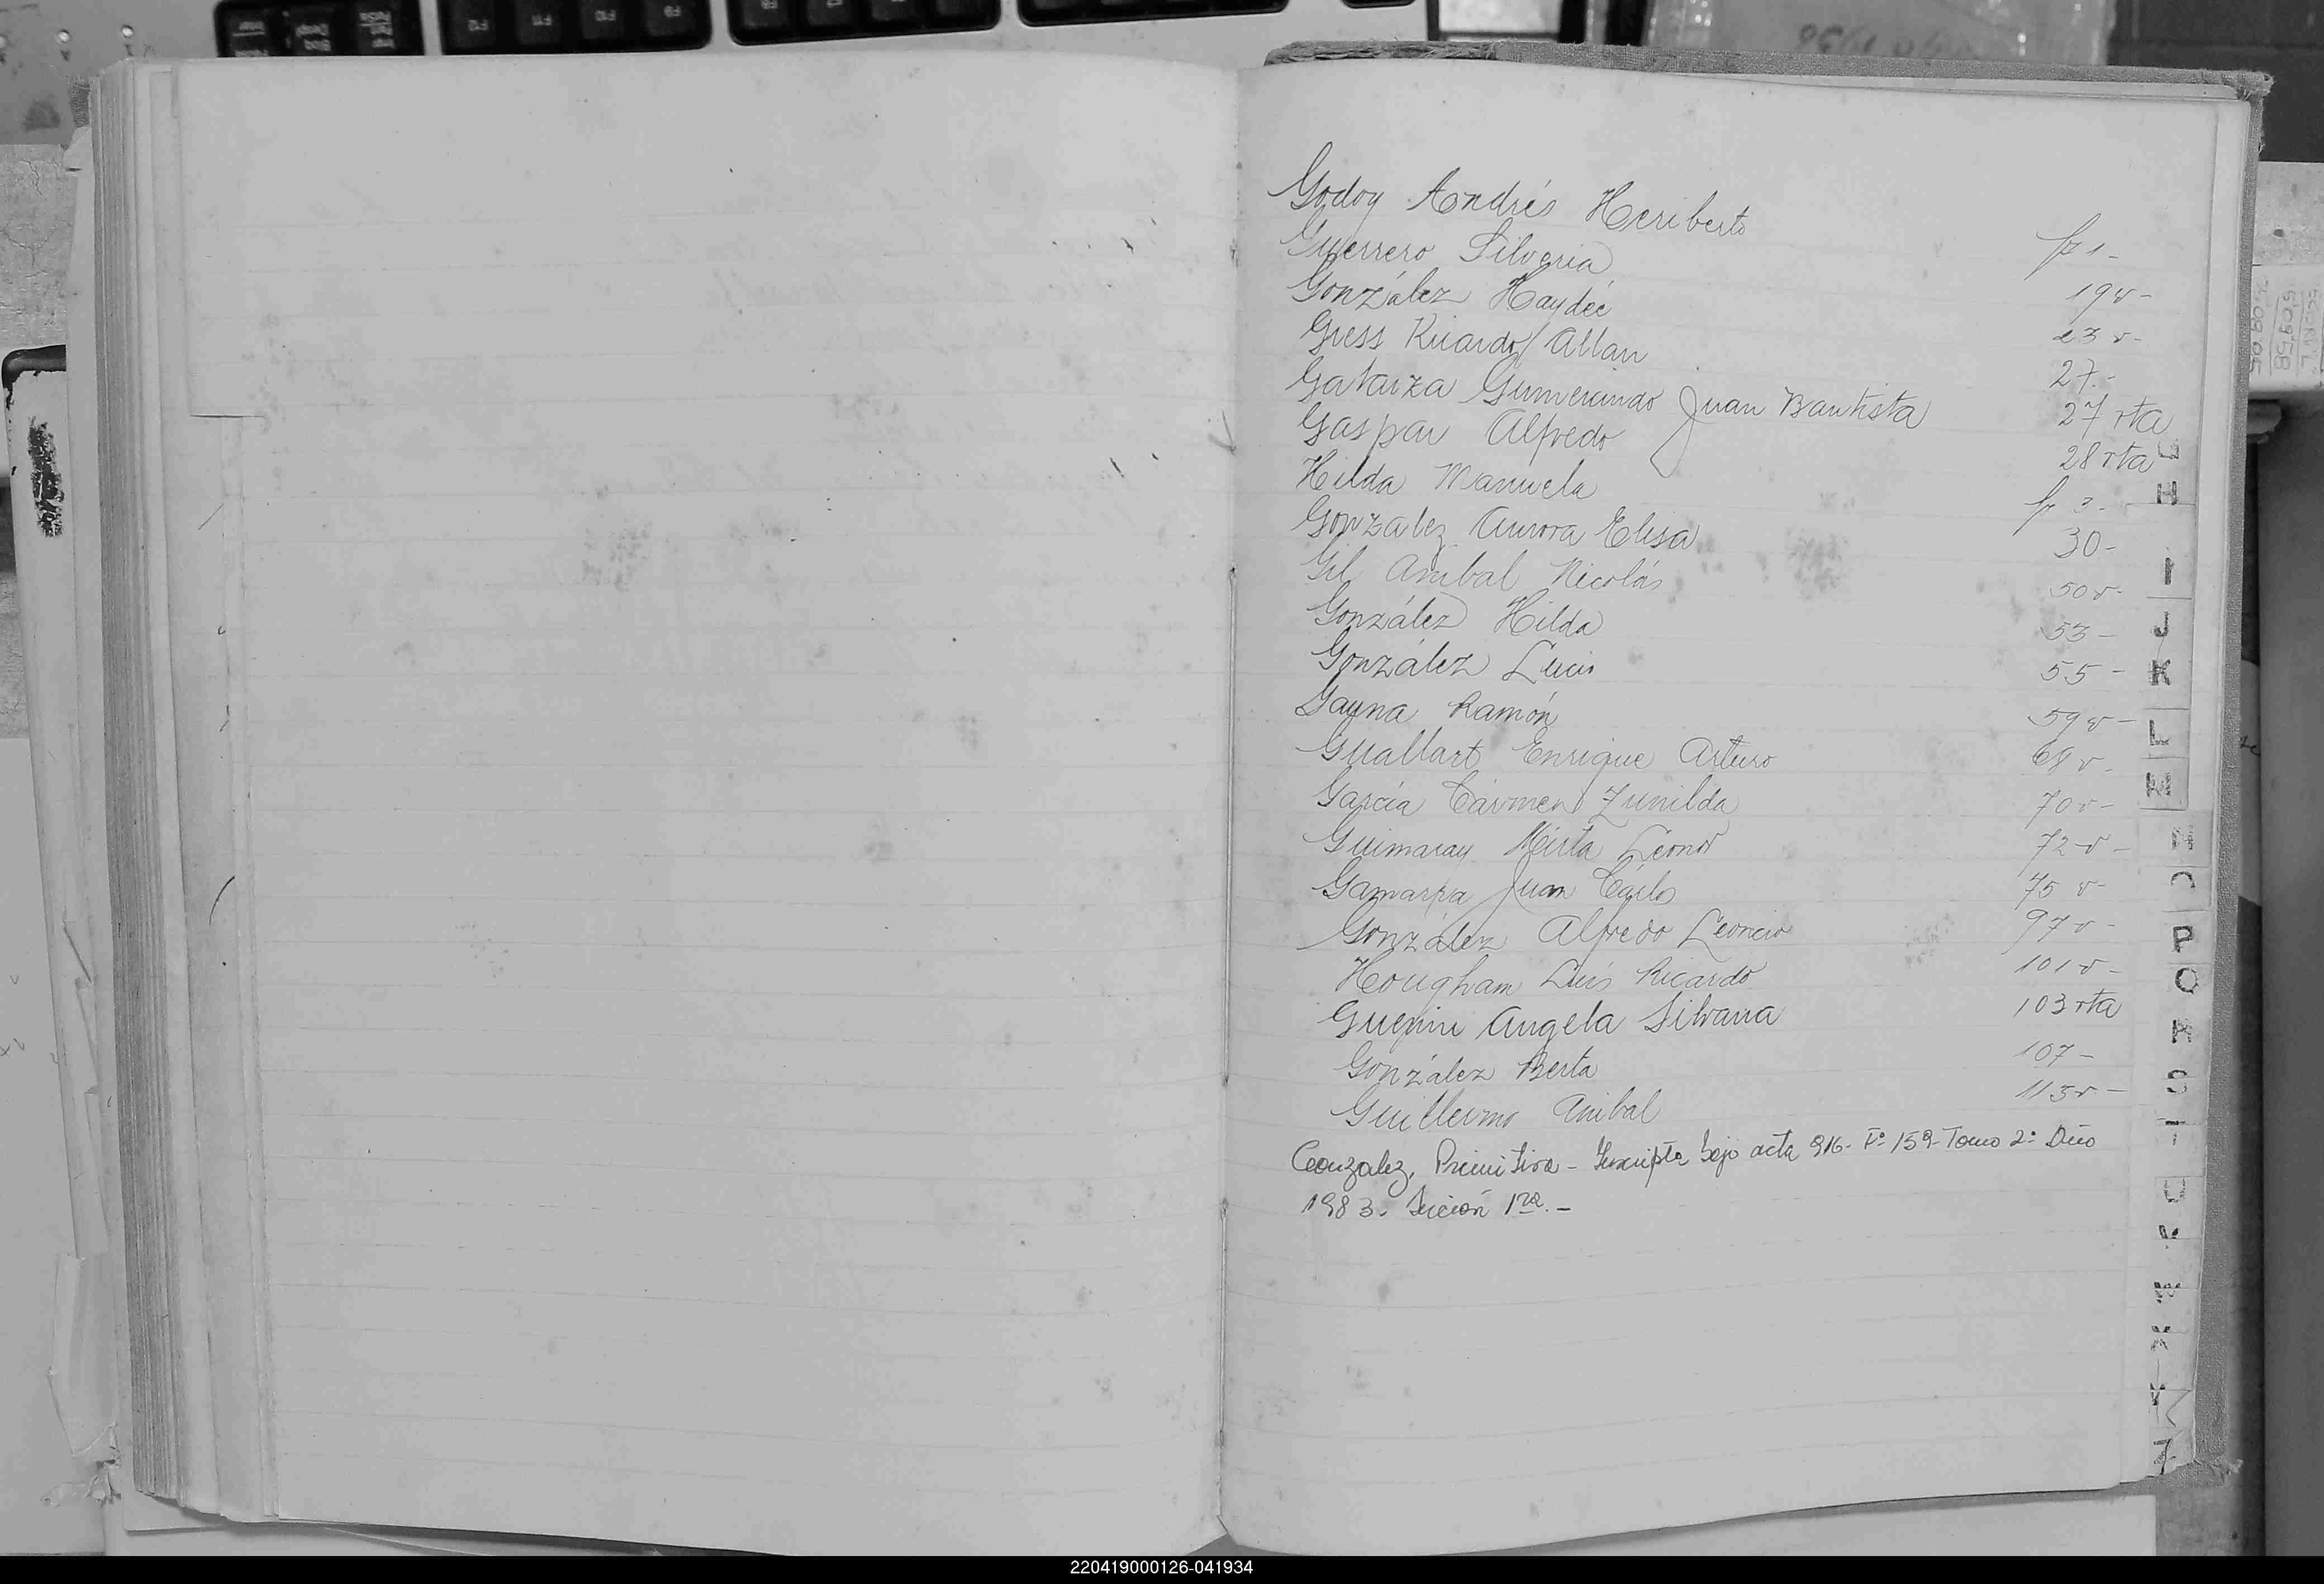 Godoy Andrés Heriberto fº 1-
Guerrero Silveria 19v-
González Haydeé 23v-
Gress Ricardo Allan 27.-
Gataiza Gumercindo Juan Bautista 27 vta
Gaspar Alfredo 28 vta
Hilda Manuela fº 3-
Gonzalez Aurora Elisa 30-
Gil Anibal Nicolás 50v-
González Hilda 53-
González Luis 55-
Gayna Ramón 59v-
Guallart Enrique Arturo 68v-
García Cármen Zunilda 70v-
Guimaray Mirta Leonor 72v-
Gamarra Juan Cárlos 75v-
González Alfredo Leoncio 97v-
Hougham Luis Ricardo 101v-
Guenin Angela Silvana 103 vta
González Berta 107-
Guillermo Anibal 113v-
Gonzalez, Primitiva - Inscripta bajo acta 916- Fº 159- Tomo 2º Año
1983. Sección 1ra.-
G
H
I
J
K
L
M
N
O
P
Q
R
S
T
U
V
X
Y
Z
220419000126-041934